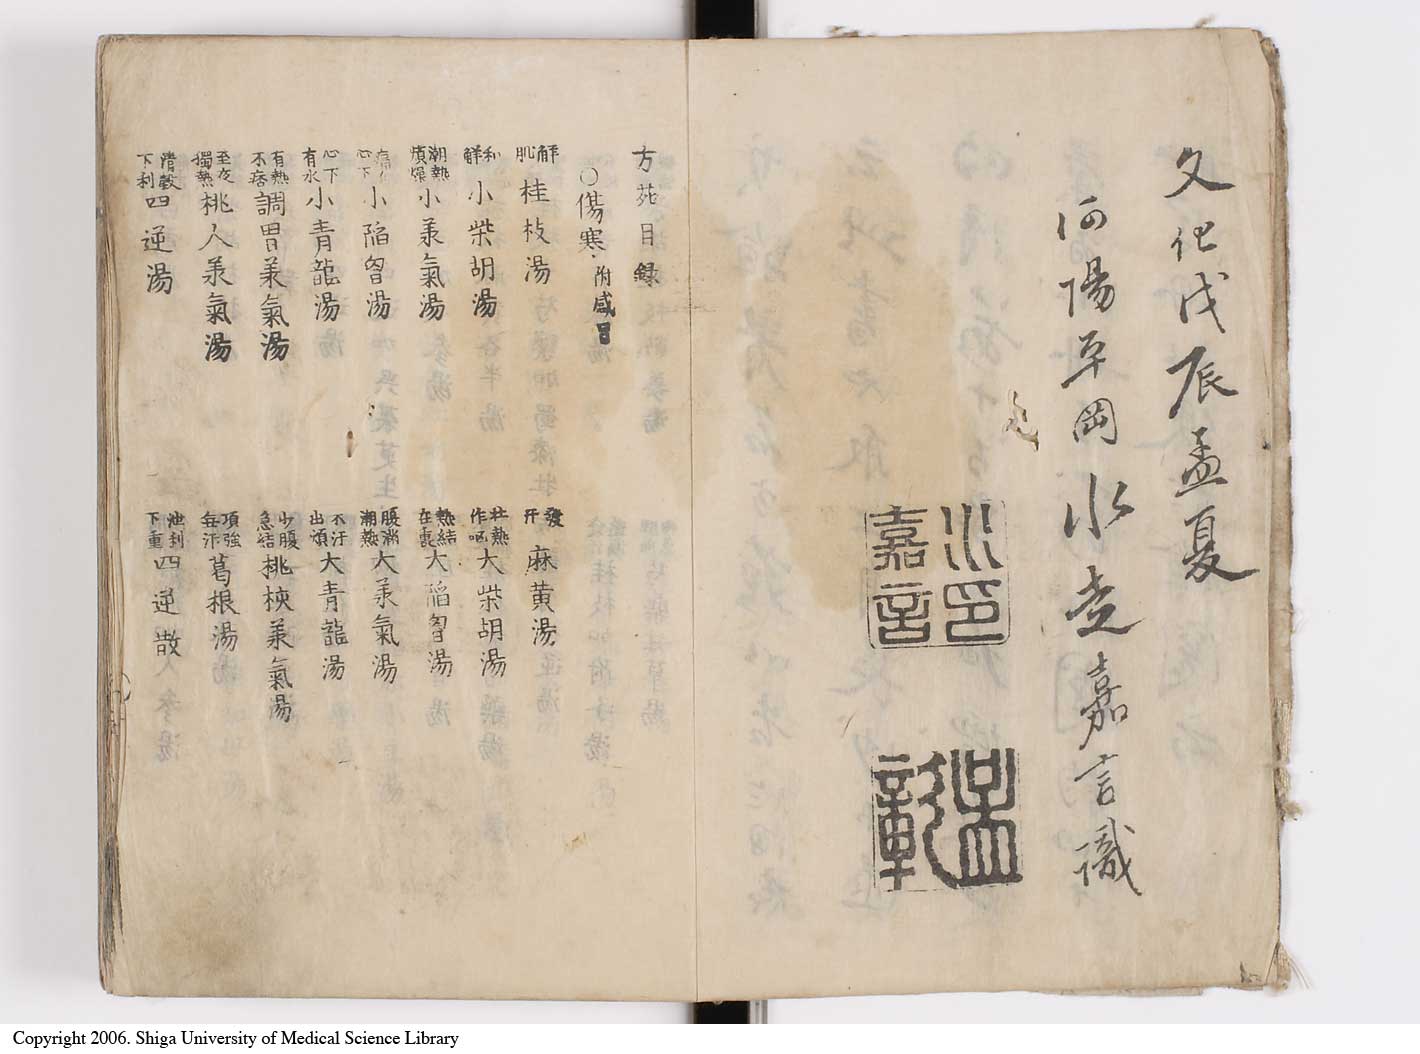 文化戊辰孟夏
河陽平岡水走嘉言識
水印嘉言
孟彰
方苑目録
○傷寒附感冒
解肌 桂枝湯
發汗 麻黄湯
和解 小柴胡湯
壮熱作嘔 大柴胡湯
潮熱煩燥 小承氣湯
熱結在裏 大陥胷湯
心下 小陥胷湯
腹満潮熱 大承氣湯
心下有水 小青龍湯
不汗出煩 大青龍湯
有熱不痞 調胃承氣湯
少腹急結 桃核承氣湯
至夜獨熱 桃人承氣湯
項強無汗 葛根湯
清穀下利 四逆湯
泄利下重 四逆散
Copyright 2006. Shiga University of Medical Science Library